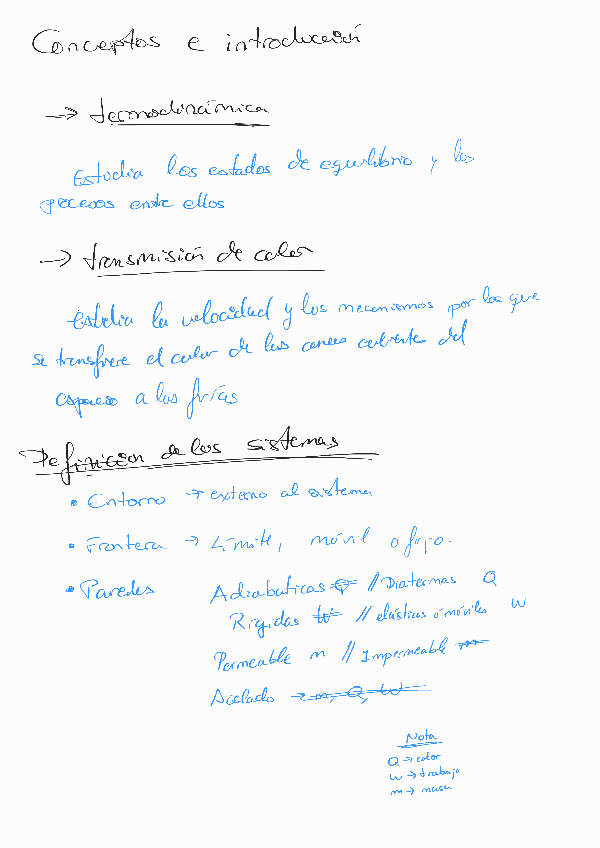 Conceptos e introducción
→ termodinámica
Estudia los estados de equilibrio y los
procesos entre ellos
→ transmisión de calor
estudia la velocidad y los mecanismos por los que
se transfiere el calor de las caliente del
espacio a las frías
Definición de los sistemas
• Entorno → externo al sistema
• Frontera → Límite, móvil o fijo.
• Paredes Adiabaticas Q // Diatermas Q
Rígidas W // elásticas o móviles W
Permeable m // Impermeable m
Aislado → m, Q, W
Nota
Q → calor
W → trabajo
m → masa